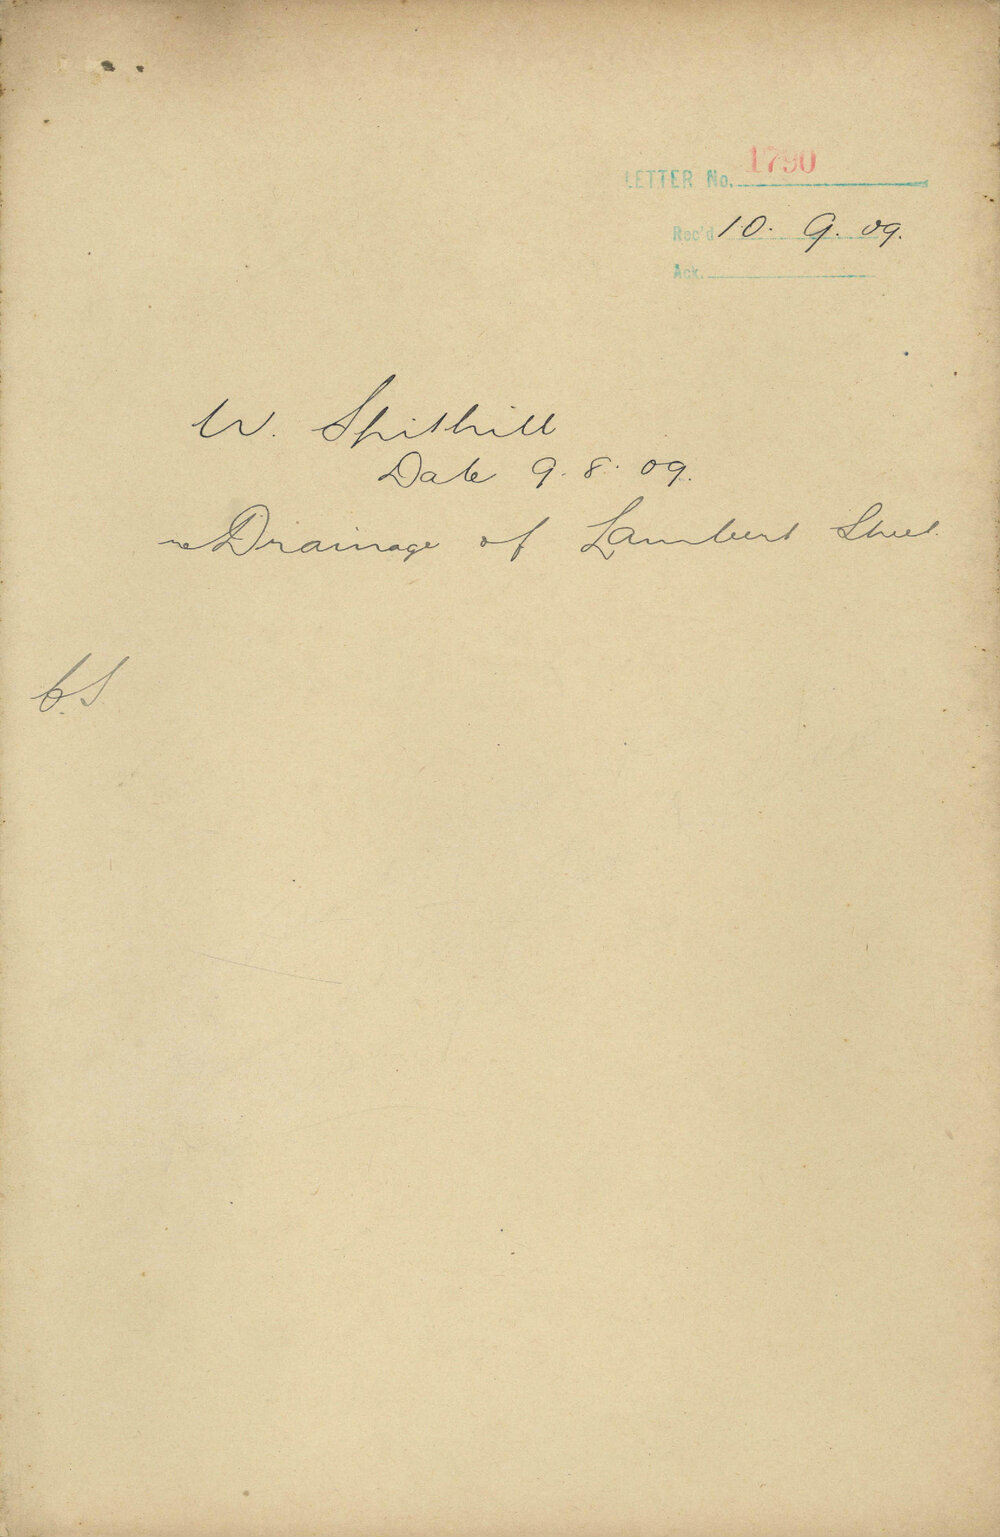 LETTER No. 1790
Rec'd 10. 9. 09.
Ack.
W. Spithill
Date 9. 8. 09.
re Drainage of Lambert Street.
C.S